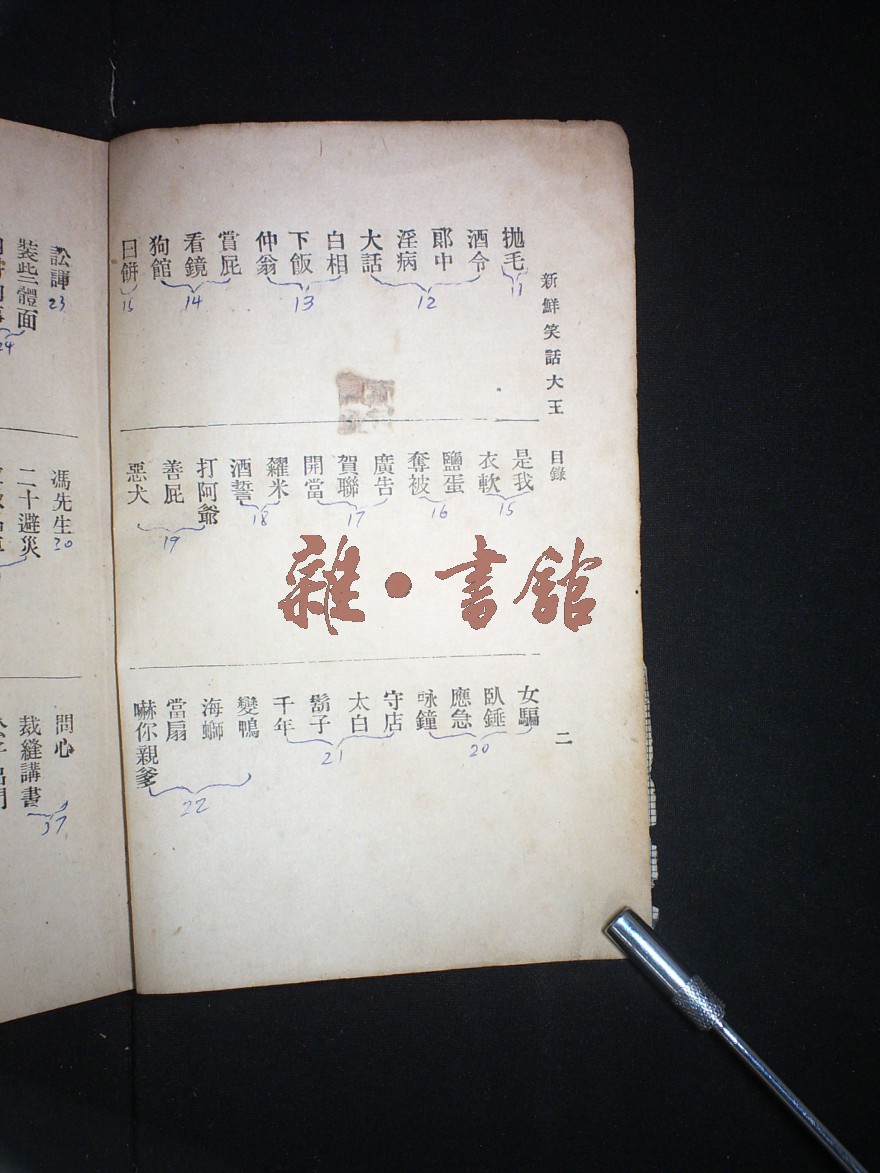 新鮮笑話大王 目錄 二
拋毛
酒令
郎中
淫病
大話
白相
下飯
仲翁
嘗屁
看鏡
狗館
日餅
11
12
13
14
15
是我
衣軟
鹽蛋
奪被
廣告
賀聯
開當
糴米
酒誓
打阿爺
善屁
惡犬
15
16
17
18
19
女騙
臥錘
應急
咏鐘
守店
太白
鬍子
千年
變鴨
海螄
當扇
嚇你親爹
20
21
22
訟諢
23
裝些體面
24
馮先生
30
二十避災
問心
裁縫講書
37
雜·書館